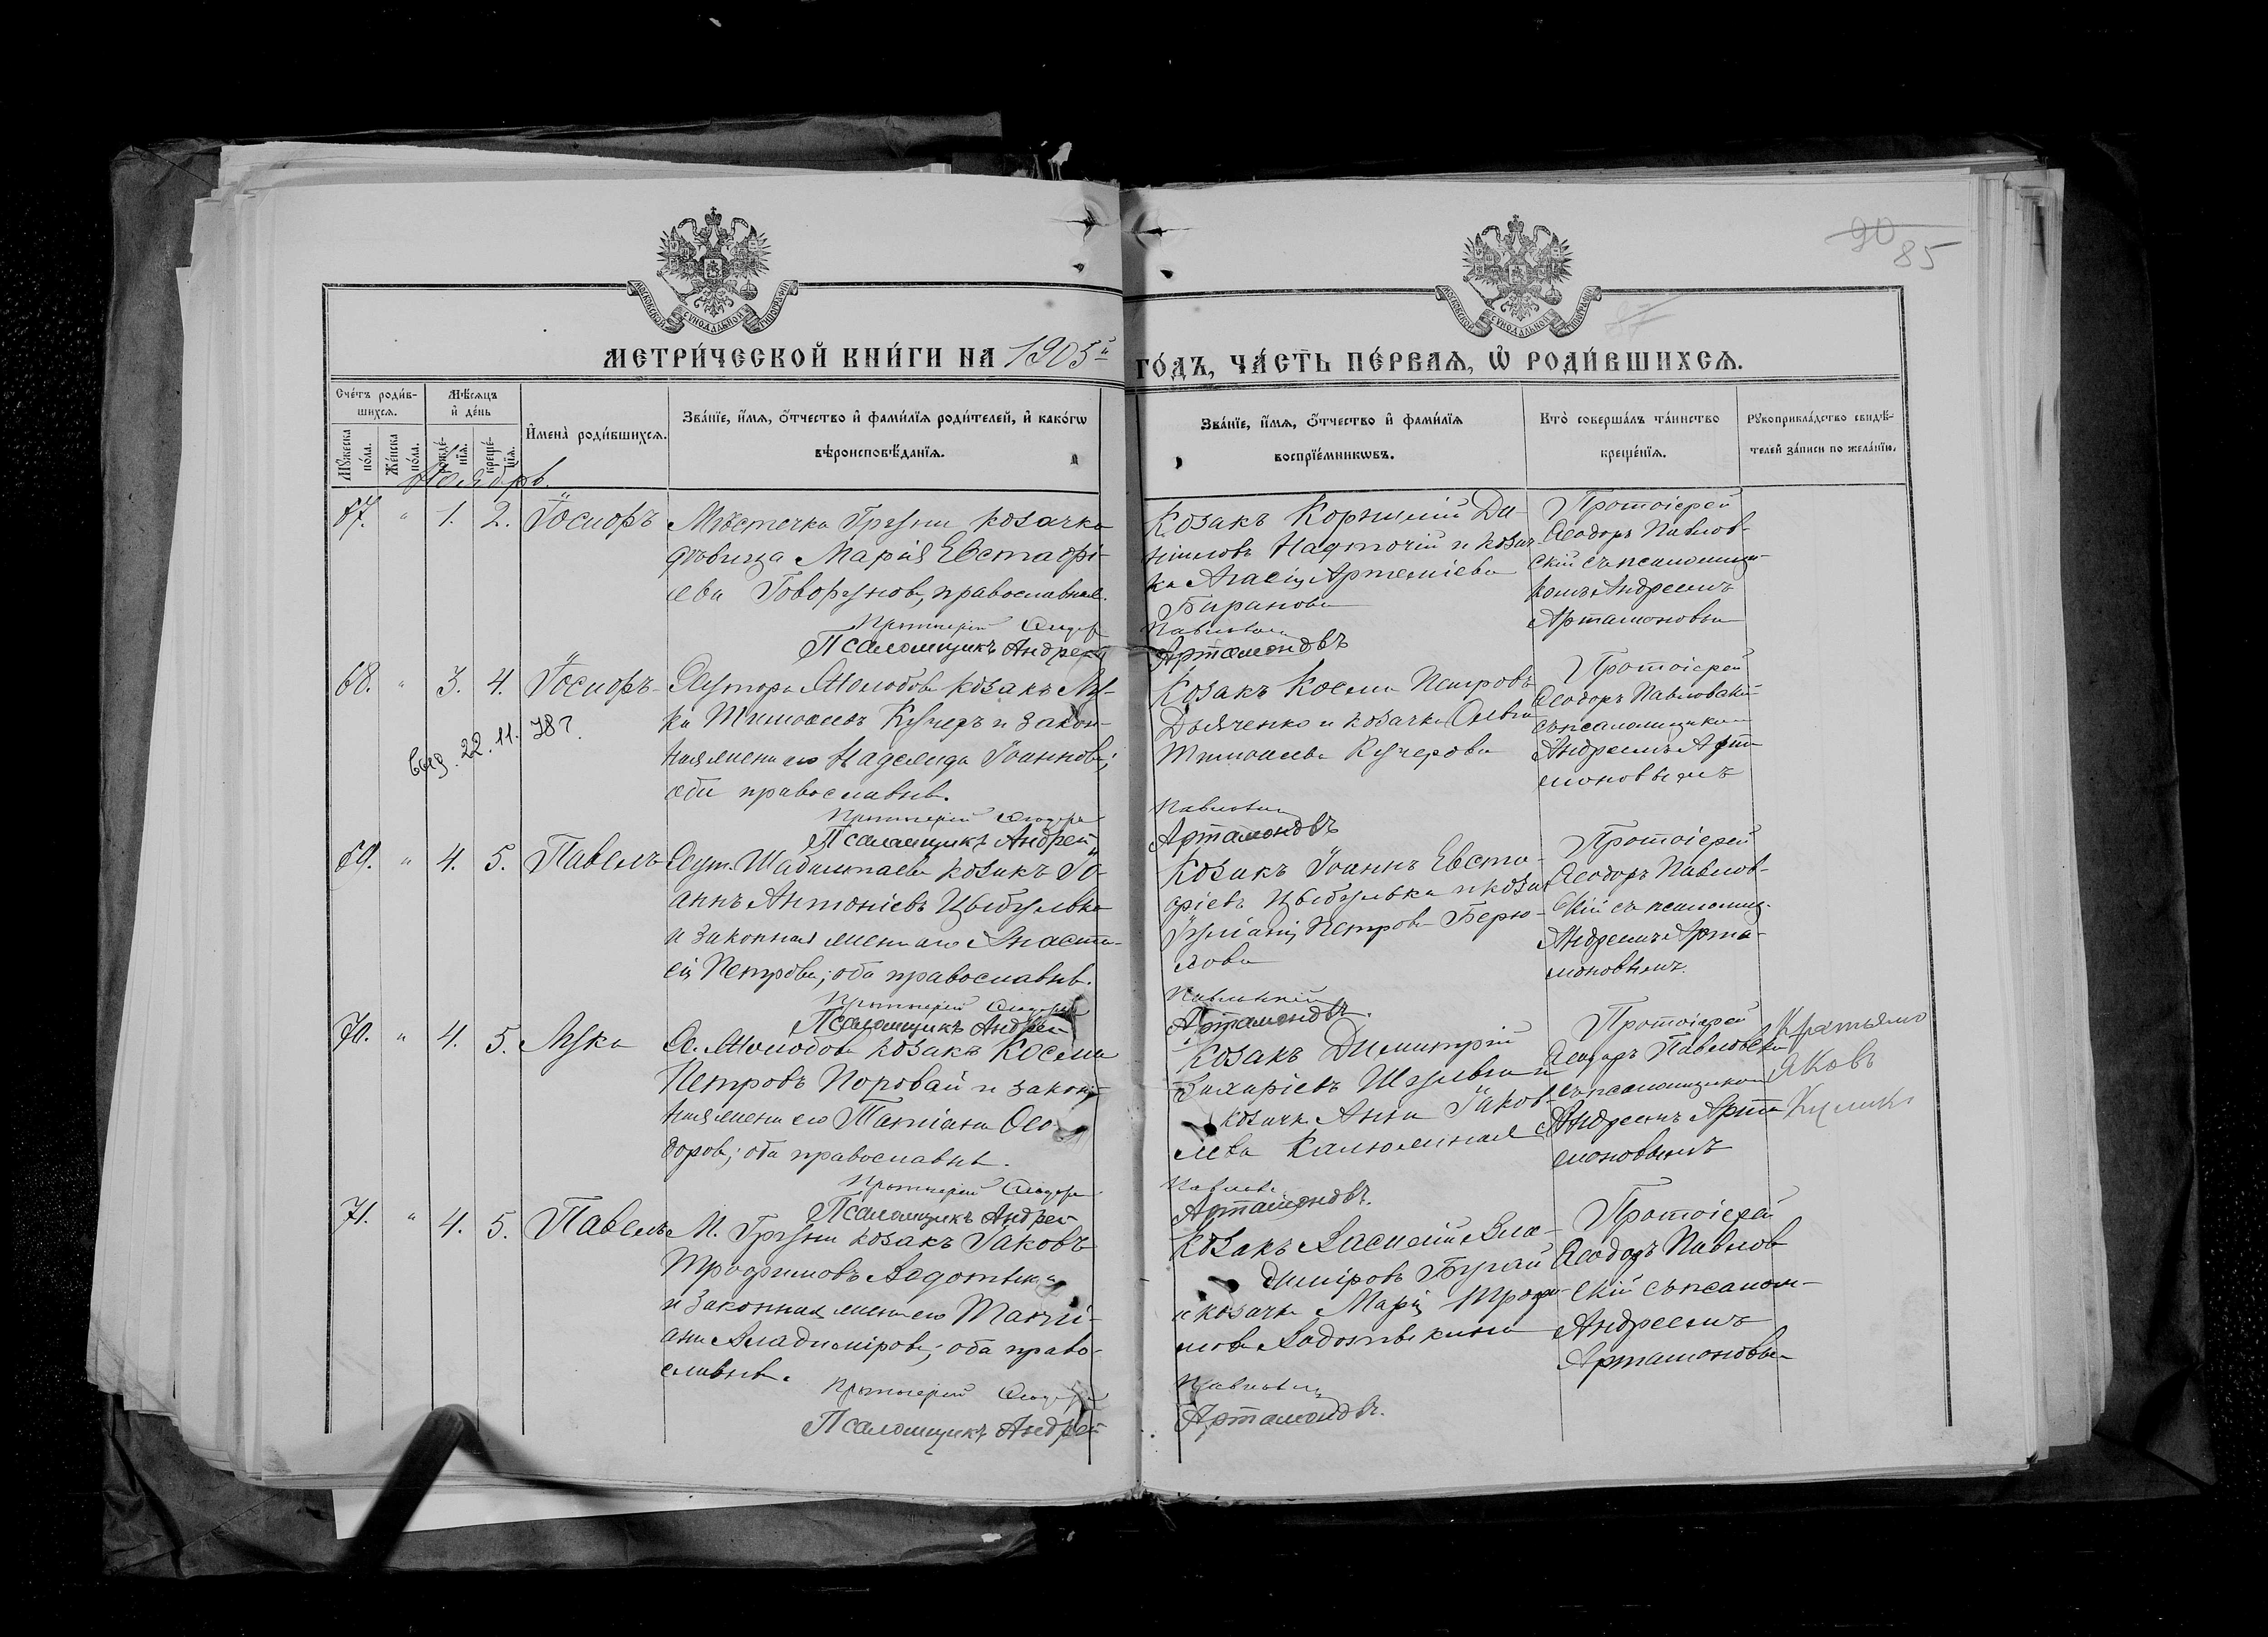 90
85
МОСКОВСКОЙ СѴНОДАЛЬНОЙ ТИПОГРАФІИ
МОСКОВСКОЙ СѴНОДАЛЬНОЙ ТИПОГРАФІИ
МЕТРИ́ЧЕСКОЙ КНИ́ГИ НА 1905й
ГО́ДЪ, ЧА́СТЬ ПЕ́РВАѦ, Ѡ҆ РОДИ́ВШИХСѦ.
Сче́тъ роди́в-
шихсѧ.
Мꙋжеска по́ла.
Же́нска по́ла.
Мѣ́сѧцъ
и҆ де́нь
рожде́-
нїѧ.
креще́-
нїѧ.
И҆мена̀ роди́вшихсѧ.
Зва́нїе, и҆́мѧ, ѻ҆́тчество и҆ фами́лїѧ роди́телей, и҆ како́гѡ
вѣроисповѣ́данїѧ.
Зва́нїе, и҆́мѧ, ѻ҆́тчество и҆ фами́лїѧ
воспрїе́мникѡвъ.
Кто̀ соверша́лъ та́инство
креще́нїѧ.
Рꙋкоприкла́дство свидѣ́-
телей за́писи по жела́нїю.
Ноябрь.
67. " 1. 2. Іосифъ
Мѣстечка Груни козачка
дѣвица Марія Евстафі-
ева Говорунова, православная.
Протоіерей Ѳеодоръ
Псаломщикъ Андрей
Козакъ Корнилій Да-
ніиловъ Надточій и козач-
ка Агаѳія Артеміева
Баранова
Павловскій
Артамоновъ
Протоіерей
Ѳеодоръ Павлов-
скій съ псаломщи-
комъ Андреемъ
Артамоновымъ
68. " 3. 4. Іосифъ
22.11.
Хутора Молодова козакъ Лу-
ка Тимоѳеевъ Кучеръ и закон-
ная жена его Надежда Іоаннова;
оба православные.
Протоіерей Ѳеодоръ
Псаломщикъ Андрей
Козакъ Косма Петровъ
Дьяченко и козачка
Тимоѳеева Кучерова
Павловскій
Артамоновъ
Протоіерей
Ѳеодоръ Павловскій
съ псаломщикомъ
Андреемъ Арта-
моновымъ
69. " 4. 5. Павелъ
Хут. козакъ Іо-
аннъ Антоніевъ Цыбулька
и законная жена его Анаста-
сія Петрова; оба православные.
Протоіерей Ѳеодоръ
Псаломщикъ Андрей
Козакъ Іоаннъ Евста-
фіевъ Цыбулька и козач.
Іуліанія Петрова
Павловскій
Артамоновъ.
Протоіерей
Ѳеодоръ Павлов-
скій съ псаломщ.
Андреемъ Арта-
моновымъ.
70. " 4. 5. Лука
Х. Молодова козакъ Косма
Петровъ Поровай и закон-
ная жена его Татіана Ѳео-
дорова; оба православные.
Протоіерей Ѳеодоръ
Псаломщикъ Андрей
Козакъ Димитрій
Захаріевъ Шульга и
козачка Анна Іаков-
лева
Павловскій
Артамоновъ.
Протоіерей
Ѳеодоръ Павловскій
съ псаломщикомъ
Андреемъ Арта-
моновымъ
Яковъ
71. " 4. 5. Павелъ
М. Груни козакъ Іаковъ
Трофимовъ
и законная жена его Татіа-
ана Владимірова; оба право-
славные.
Протоіерей Ѳеодоръ
Псаломщикъ Андрей
Козакъ Василій Вла-
диміровъ Бугай
и козачка Марія Трофи-
мова
Павловскій
Артамоновъ.
Протоіерей
Ѳеодоръ Павлов
скій съ псалом-
Андреемъ
Артамоновым